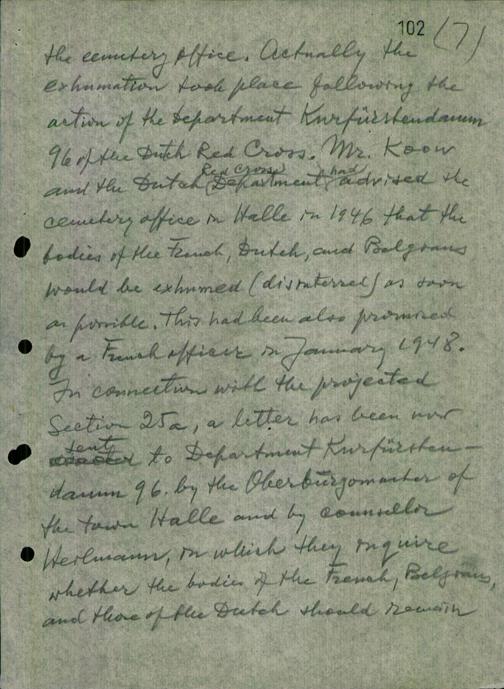 102 (7)
the cemetery office. Actually the
exhumation took place following the
action of the Department Kurfürstendamm
96 of the Dutch Red Cross. Mr. Koow
Red Cross had
and the Dutch Department advised the
cemetery office in Halle in 1946 that the
bodies of the French, Dutch, and Belgians
would be exhumed (disinterred) as soon
as possible. This had been also promised
by a French officer in January 1948.
In connection with the projected
Section 25a, a letter has been now
sent
to Department Kurfürsten-
damm 96. by the Oberbürgomaster of
the town Halle and by counsellor
Heilmann, in which they inquire
whether the bodies of the French, Belgians,
and those of the Dutch should remain